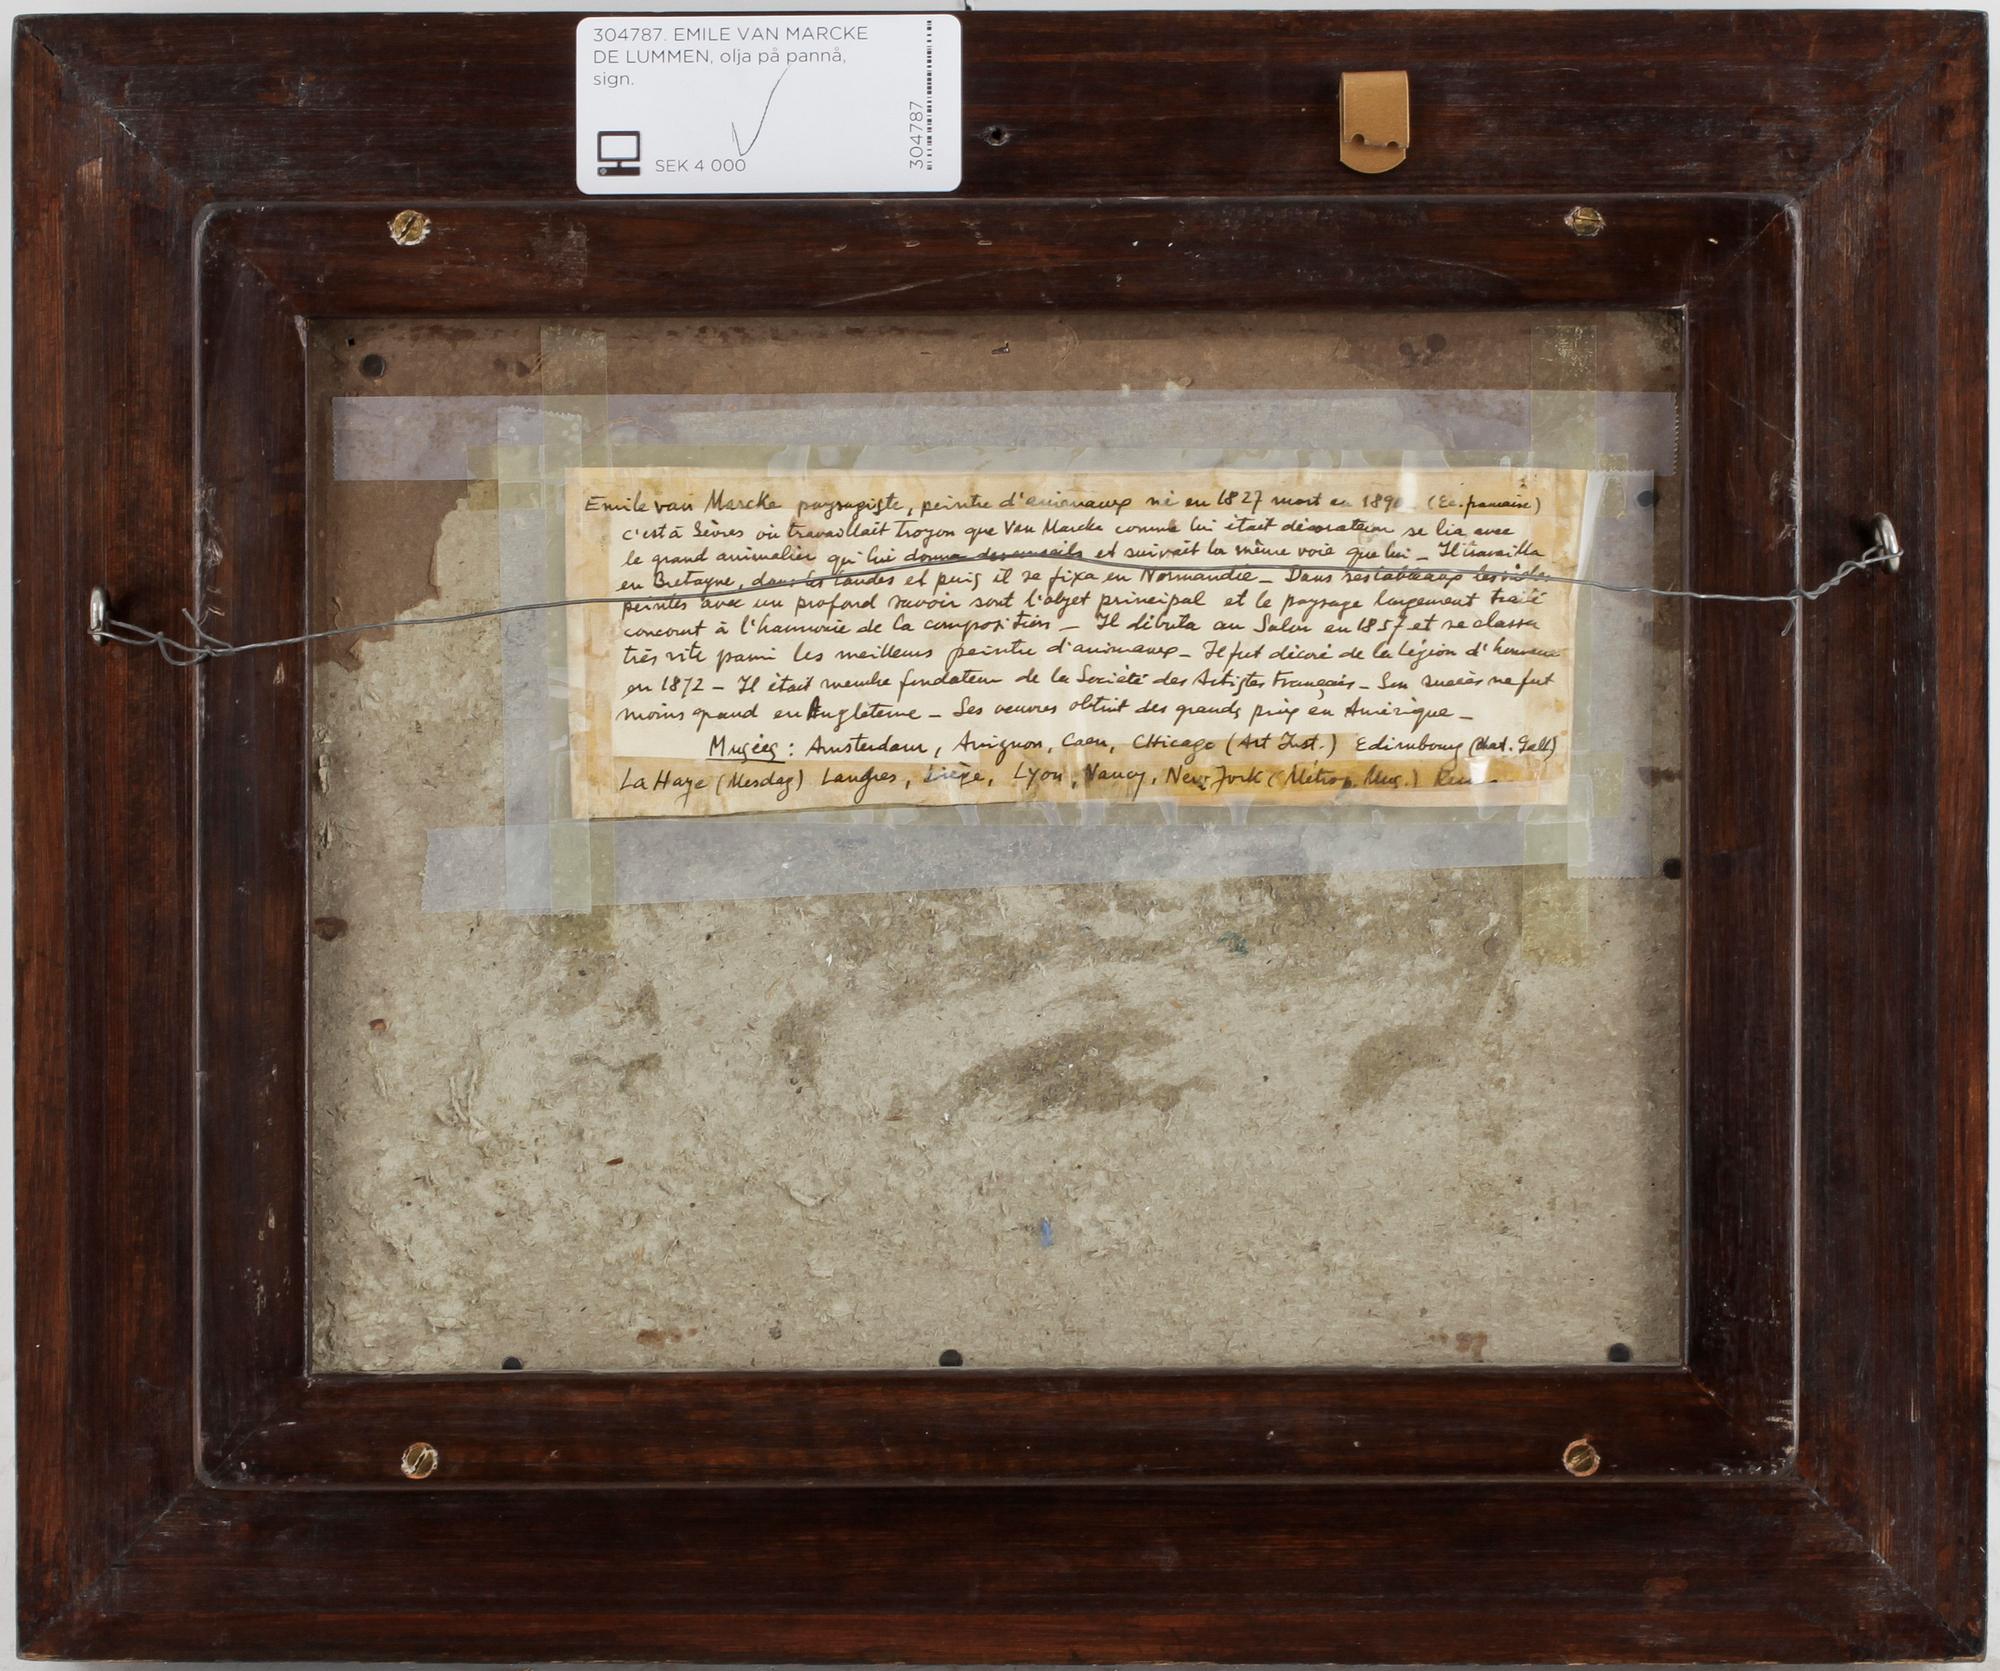 304787. EMILE VAN MARCKE
DE LUMMEN, olja på pannå,
sign.
SEK 4 000
304787
Emile van Marcke paysagiste, peintre d'animaux né en 1827 mort en 1890 (Ec. française)
c'est à Sèvres où travaillait Troyon que Van Marcke comme lui était décorateur se lia avec
le grand animalier qui lui donna des conseils et suivait la même voie que lui - Il travailla
en Bretagne, dans les Landes et puis il se fixa en Normandie - Dans ses tableaux les
peintes avec un profond savoir sont l'objet principal et le paysage largement traité
concourt à l'harmonie de la composition - Il débuta au Salon en 1857 et se classa
très vite parmi les meilleurs peintre d'animaux - Il fut décoré de la légion d'honneur
en 1872 - Il était membre fondateur de la Société des Artistes Français - Son succès ne fut
moins grand en Angleterre - Ses oeuvres obtint des grands prix en Amérique -
Musées : Amsterdam, Avignon, Caen, CHicago (Art Inst.) Edimbourg (Nat. Gall)
La Haye (Mesdag) Langres, Liège, Lyon, Nancy, New York (Métrop. Mus.)